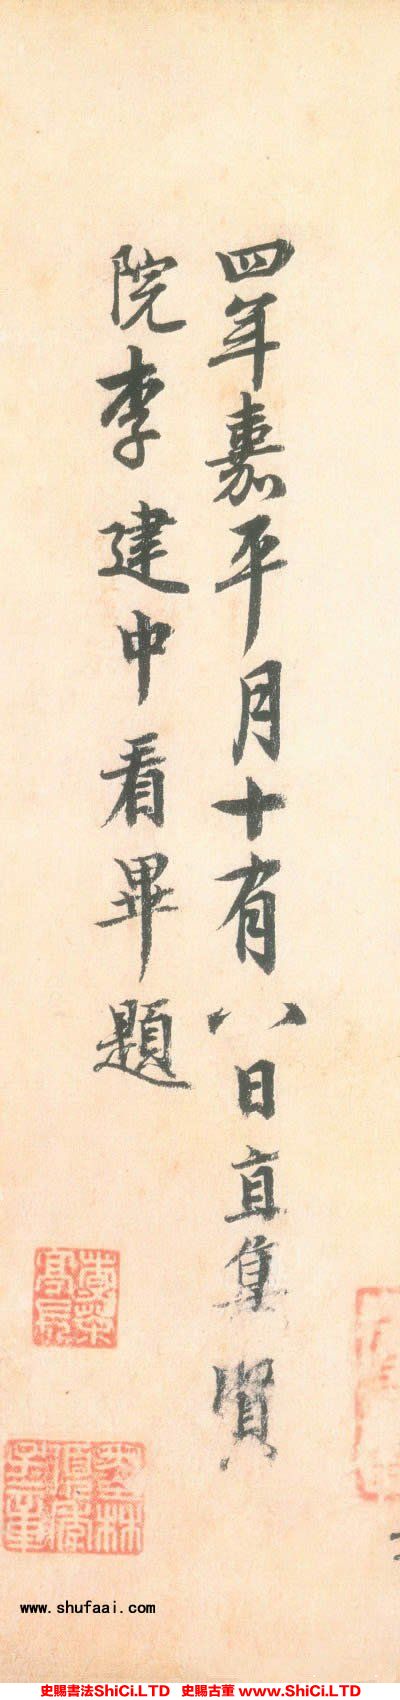 四年嘉平月十有八日直集賢
院李建中看畢題
www.shufaai.com
史賜書法ShiCi.LTD 史賜古董 www.ShiCi.LTD